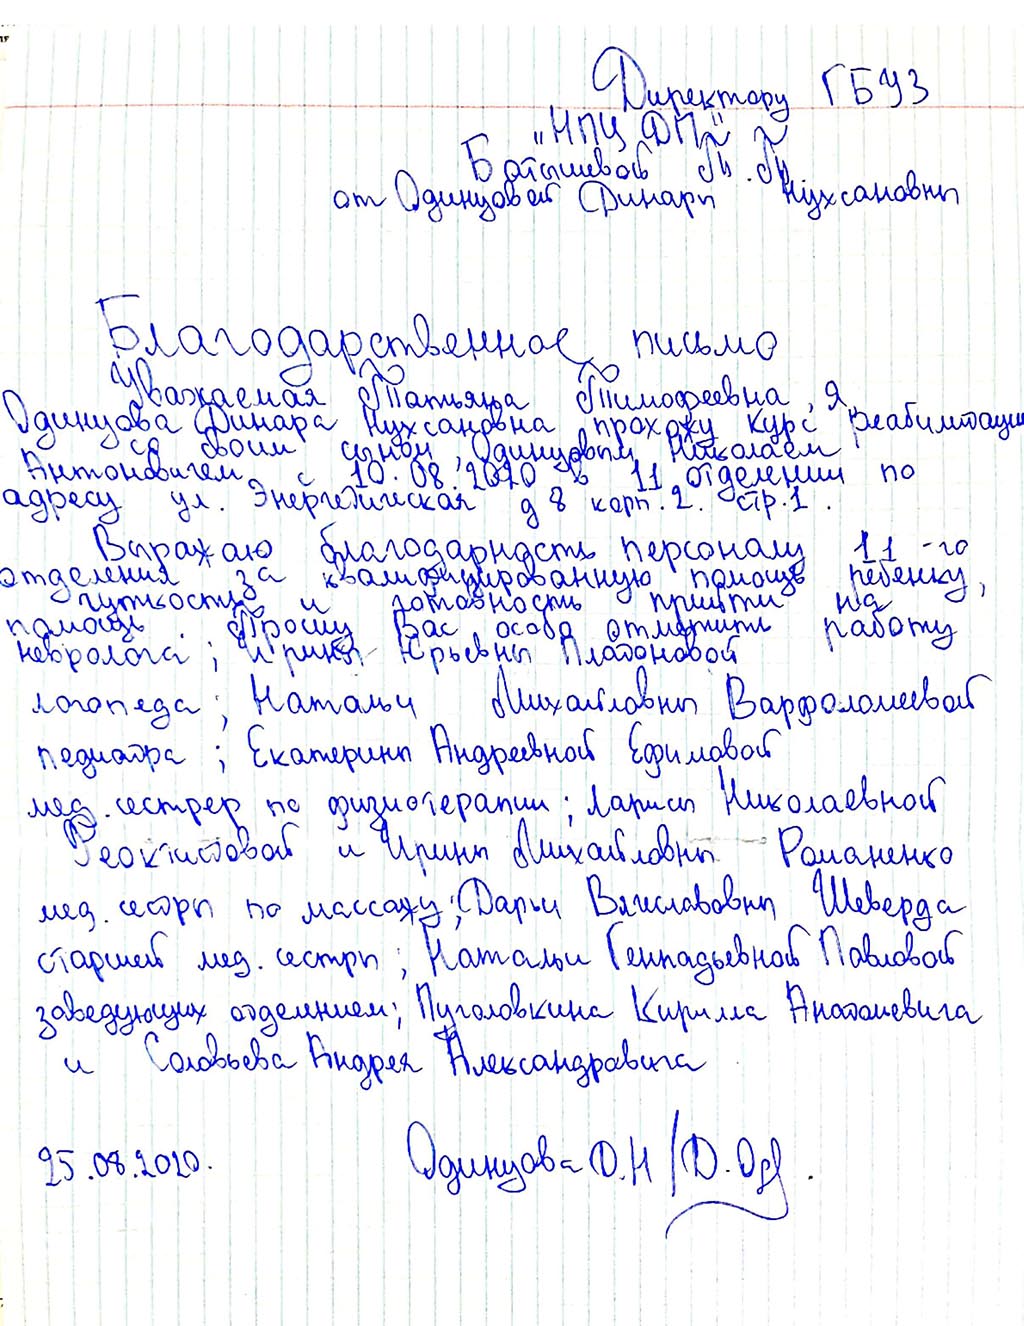 Директору ГБУЗ
"НПЦ ДП"
Батышевой Т.Т.
от Одинцовой Динары Нухсановны
Благодарственное письмо
Уважаемая Татьяна Тимофеевна, я
Одинцова Динара Нухсановна прохожу курс реабилитации
со своим сыном, Одинцовым Николаем
Антоновичем с 10.08.2020 в 11 отделении по
адресу ул. Энергетическая д 8 корп. 2. стр. 1.
Выражаю благодарность персоналу 11-го
отделения за квалифицированную помощь ребенку,
чуткость и готовность прийти на
помощь. Прошу Вас особо отметить работу
невролога; Ирины Юрьевны Платоновой
логопеда; Натальи Михайловны Варфоломеевой
педиатра; Екатерины Андреевной Ефимовой
мед. сестрер по физиотерапии; Ларисы Николаевной
Феоктистовой и Ирины Михайловны Романенко
мед. сестры по массажу; Дарьи Шеверда
старшей мед. сестры; Натальи Геннадьевной Павловой
заведующих отделением; Пуголовкина Кирилла Анатольевича
и Соловьева Андрея Александровича
25.08.2020. Одинцова Д.Н / Д. Од .